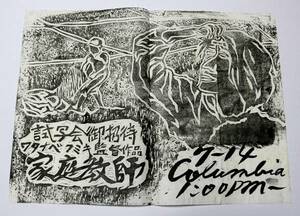 試写会御招待
ワタナベフミキ監督作品
家庭教師
7-14
Columbia
1:00PM～